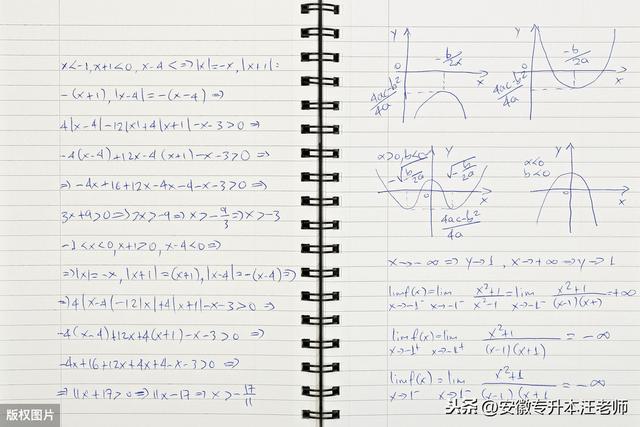 x<-1, x+1<0, x-4<⇒|x|=-x, |x+1|=
-(x+1), |x-4|=-(x-4) ⇒
4|x-4|-12|x|+4|x+1|-x-3>0 ⇒
-4(x-4)+12x-4(x+1)-x-3>0 ⇒
⇒-4x+16+12x-4x-4-x-3>0 ⇒
3x+9>0⇒3x>-9⇒x>-9/3⇒x>-3
-1<x<0, x+1>0, x-4<0⇒
⇒|x|=-x, |x+1|=(x+1), |x-4|=-(x-4)⇒
⇒4|x-4|-12|x|+4|x+1|-x-3>0 ⇒
-4(x-4)+12x+4(x+1)-x-3>0 ⇒
-4x+16+12x+4x+4-x-3>0 ⇒
⇒11x+17>0⇒11x-17⇒x>-17/11
y
-b/2a
0
x
4ac-b²/4a
y
-b/2a
0
x
4ac-b²/4a
a>0, b<0
y
-√-b/2a
√-b/2a
0
x
4ac-b²/4a
a<0
b<0
y
0
x
x→-∞⇒y→1, x→+∞⇒y→1
limf(x)=lim x²+1/x²-1=lim x²+1/(x-1)(x+)=+∞
x→-1⁻ x→-1⁻ x→-1⁻
limf(x)=lim x²+1/(x-1)(x+1)=-∞
x→-1⁺ x→-1⁺
limf(x)=lim x²+1/(x-1)(x+1=-∞
x→1⁻ x→1⁻
版权图片
头条@安徽专升本汪老师